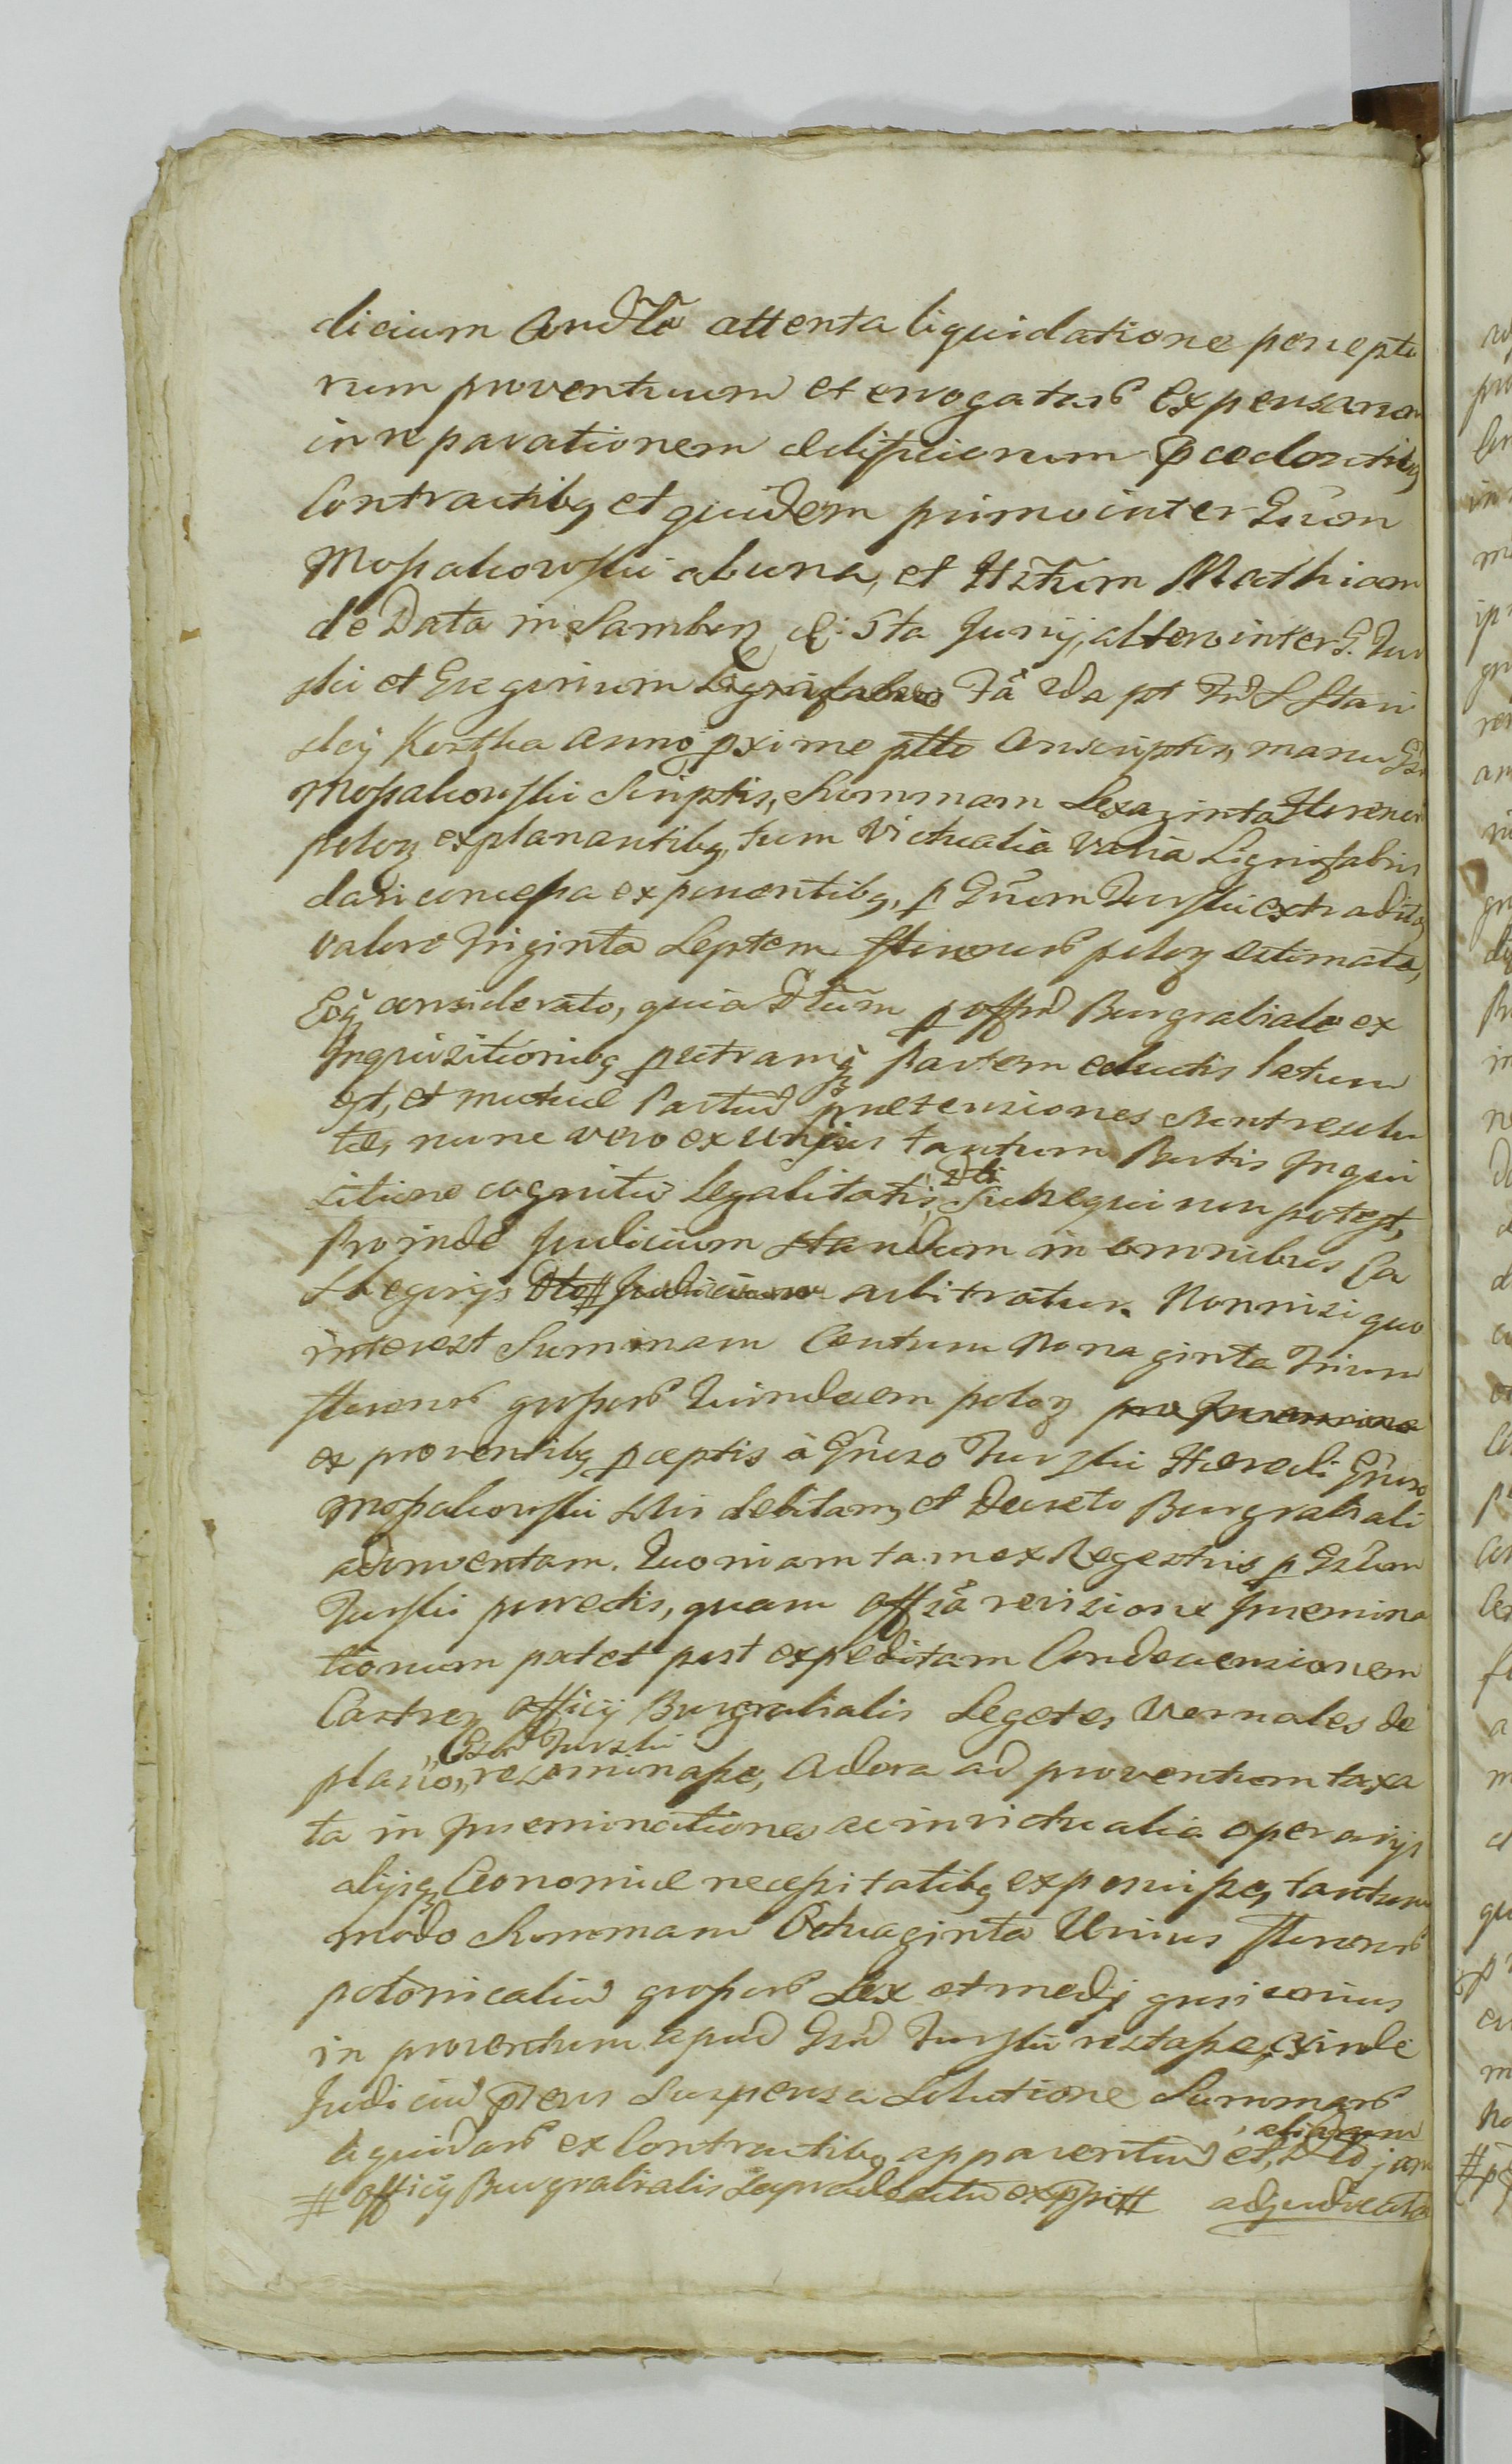 dicium Condto attenta liquidatione percepto
rum proventuum et errogatarʒ Expensarum
in reparationem aedificiorum pcedentibꝫ
Contractibꝫ et quidem primo inter Gnum
Mossakowski ab una, et Hstum Mathiam
de Data in Sambrz di: 5ta Junij, altero inter G. Tur
ski et Gregorium Lignifabro
sley Kostka anno pxime ptto Conscriptis, manu Gsi
Mossakowski Scriptis, Summam Sexaginta Florenor
polon explanantibꝫ, tum Victualia varia Lignifabris
dari concessa exponentibꝫ, p Gnum Turski extradita,
valore Triginta Septem florenorʒ polon estimata,
Eoqꝫ considerato, quia Dtum p offm Burgrabiale ex
Inquisitionibꝫ p utramqꝫ Partem eductis latum
est, et mutuae Partium praetensiones sunt resolu
tae, nunc vero ex unius tantum Partis Inqui
sitione cognitio Legalitatis Dti Subsequi non potest,
Proinde Judicium standum in omnibus Ca
thegorijs Dto # Judicium arbitratur. Nonnisi quo
interest Summam Centum Nonaginta Trium
florenorʒ grossorʒ Quindecem polon
ex proventibꝫ pceptis à Gnroso Turski Haeredi Gnroso
Mossakowski solvi debitam, et Decreto Burgrabiali
adinventam. Quoniam tam ex Regestris p Gsum
Turski porrectis, quam offsa revisione Insemina
tionum patet post expeditam Condescensionem
Castren officij Burgrabialis Segetes Vernales de
plano, Gsum Turski reseminasse, Adora ad proventum taxa
ta in Inseminationes ac in victualia operarijs
alijsqꝫ Oeconomiae necessitatibꝫ exposuisse, tantum
modo Summam Octuaginta Unius florenorʒ
polonicaliu grossorʒ Sex et medij
in proventum apud Gsm Turski restasse, Exinde
Judiciu pns Suspensa Solutione Summarʒ
liquidarʒ ex Contractibꝫ apparentiu et, aliarum Dto jam
# officij Burgrabialis # adjudicata